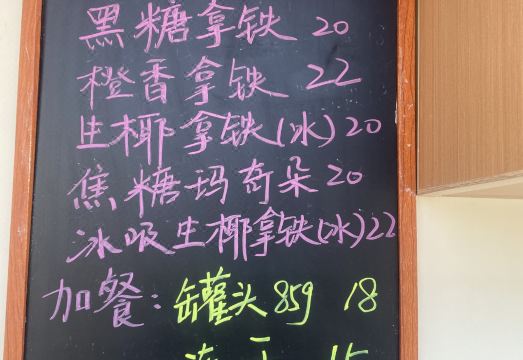 黑糖拿铁 20
橙香拿铁 22
生椰拿铁(冰) 20
焦糖玛奇朵 20
冰吸生椰拿铁(冰) 22
加餐: 罐头 85g 18
15